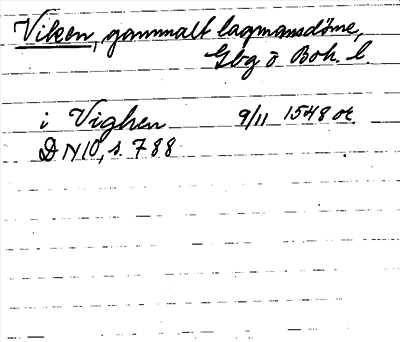 Viken, gammalt lagmansdöme,
Gbg o Boh. l.
i Vighen 9/11 1548 or.
DN 10, s. 788